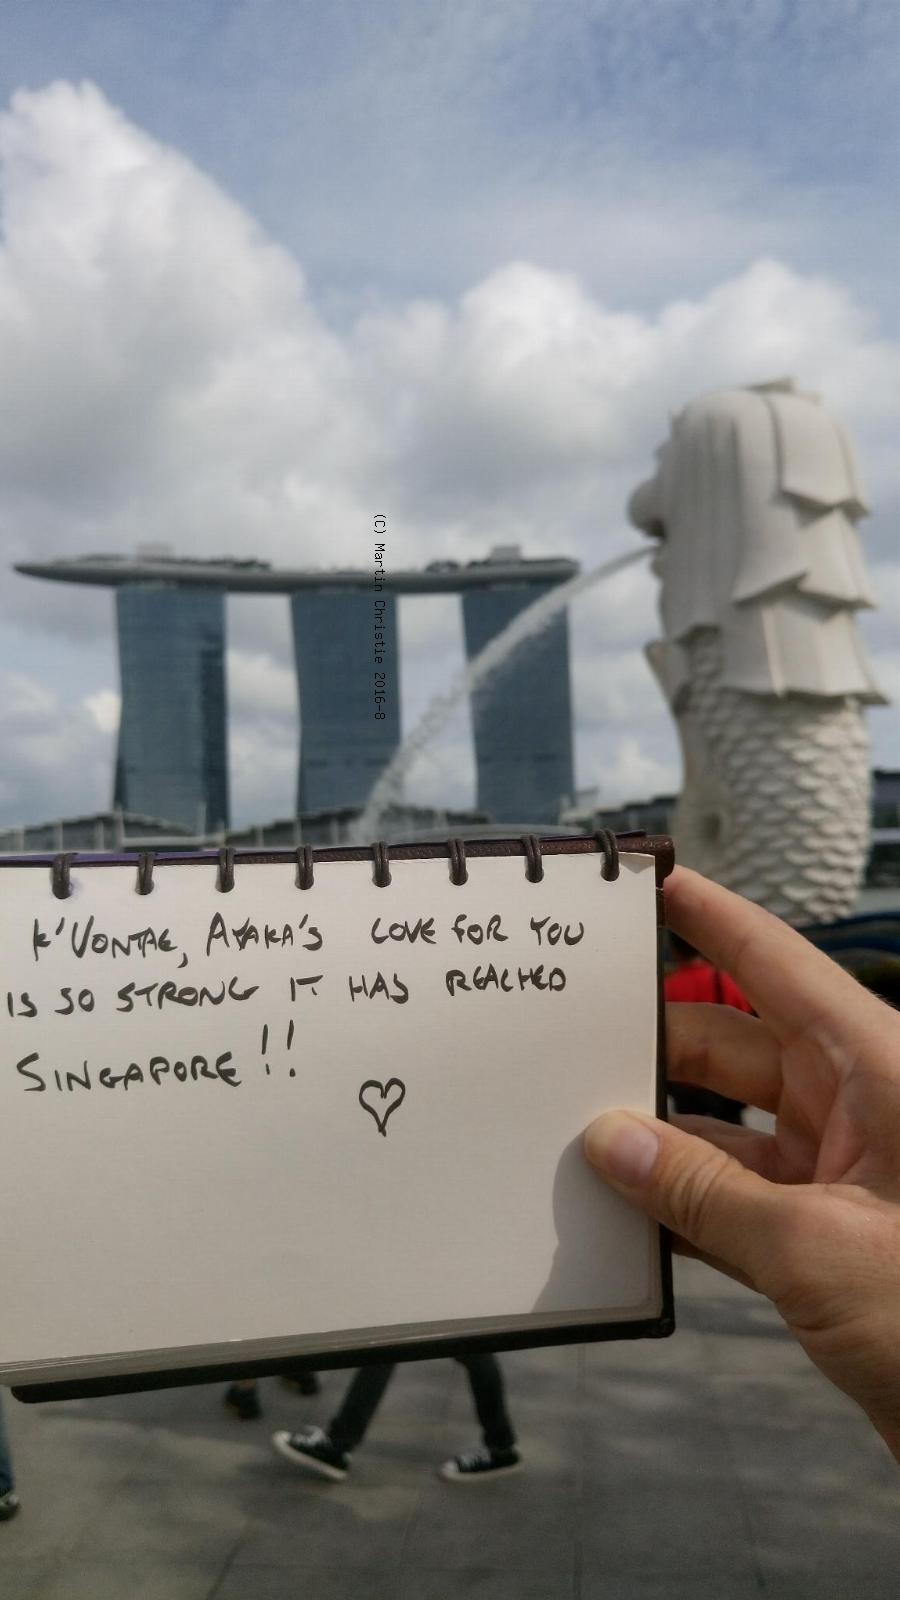 K'VONTAE, AYAKA'S LOVE FOR YOU
IS SO STRONG IT HAS REACHED
SINGAPORE!!
(C) Martin Christie 2016-8